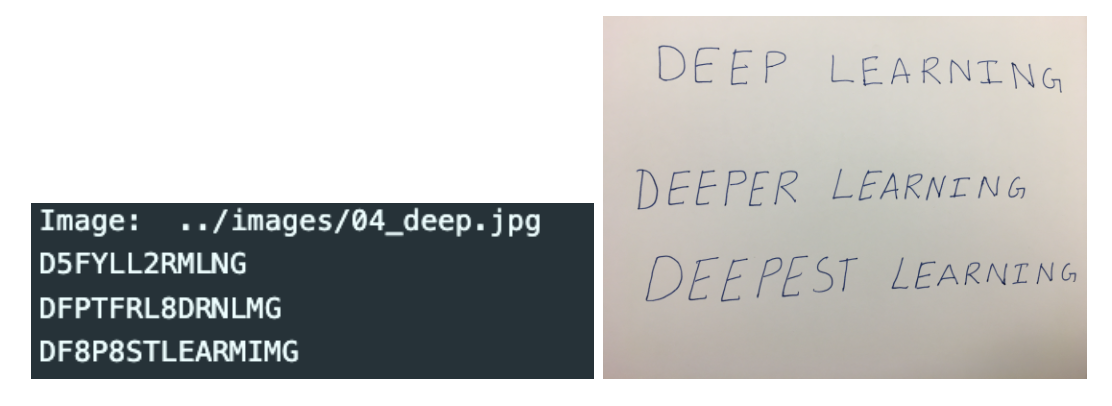 Image:  ../images/04_deep.jpg
D5FYLL2RMLNG
DFPTFRL8DRNLMG
DF8P8STLEARMIMG
DEEP LEARNING
DEEPER LEARNING
DEEPEST LEARNING